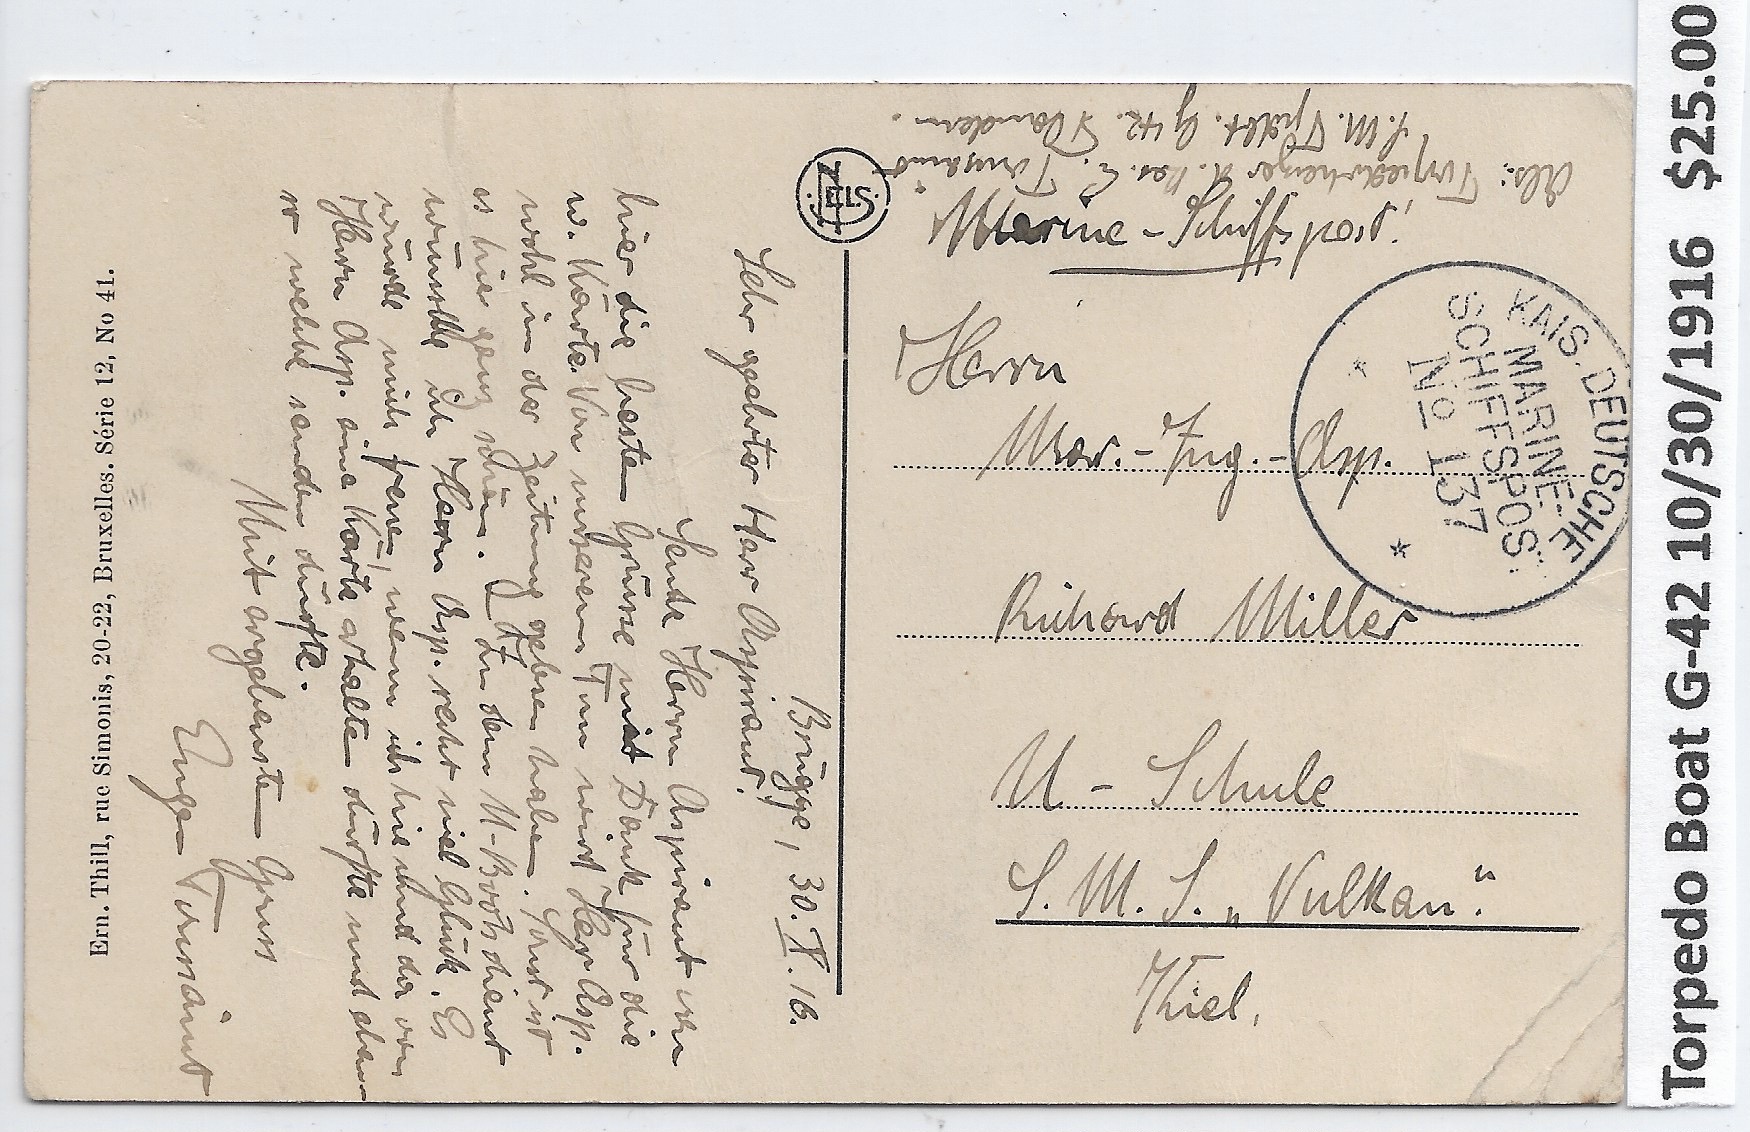 Abs: Torpedoheizer d. Res. E. Toussaint
S. M. Tpdbt. G 42. Flandern.
Marine-Schiffspost.
KAIS. DEUTSCHE
MARINE-
SCHIFFSPOST
No 137
Herrn
Mar.-Ing.-Asp.
Richard Miller
U-Schule
S. M. S. „Vulkan“
Kiel.
ELS
Brügge, 30. X. 16.
Sehr geehrter Herr Aspirant!
Sende Herrn Aspirant von
hier die besten Grüsse mit Dank für die
w. Karte. Von unserem Tun wird Herr Asp.
wohl in der Zeitung gelesen haben. Sonst ist
es hier ganz schön. In dem U-Bootsdienst
wünsche ich Herrn Asp. recht viel Glück. Es
würde mich freuen, wenn ich hie und da von
Herrn Asp. eine Karte erhalten dürfte und eben
so welche senden dürfte.
Mit ergebensten Gruss
Eugen Toussaint
Ern. Thill, rue Simonis, 20-22, Bruxelles. Série 12, No 41.
Torpedo Boat G-42 10/30/1916 $25.00